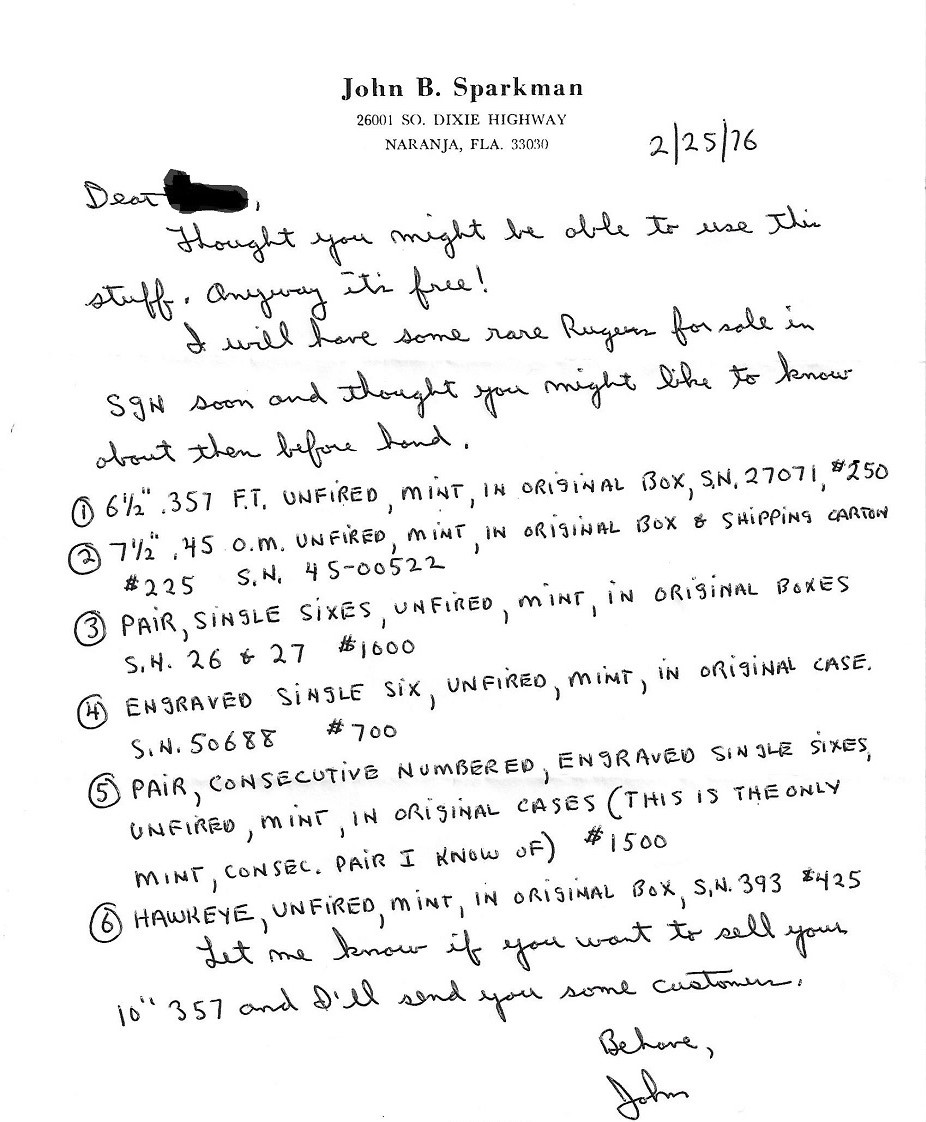 John B. Sparkman
26001 SO. DIXIE HIGHWAY
NARANJA, FLA. 33030
2/25/76
Dear ,
Thought you might be able to use this
stuff. Anyway it's free!
I will have some rare Rugers for sale in
SGN soon and thought you might like to know
about then before hand.
① 6½" .357 F.T. UNFIRED, MINT, IN ORIGINAL BOX, S.N. 27071, $250
② 7½" .45 O.M. UNFIRED, MINT, IN ORIGINAL BOX & SHIPPING CARTON
$225 S.N. 45-00522
③ PAIR, SINGLE SIXES, UNFIRED, MINT, IN ORIGINAL BOXES
S.N. 26 & 27 $1000
④ ENGRAVED SINGLE SIX, UNFIRED, MINT, IN ORIGINAL CASE.
S.N. 50688 $700
⑤ PAIR, CONSECUTIVE NUMBERED, ENGRAVED SINGLE SIXES,
UNFIRED, MINT, IN ORIGINAL CASES (THIS IS THE ONLY
MINT, CONSEC. PAIR I KNOW OF) $1500
⑥ HAWKEYE, UNFIRED, MINT, IN ORIGINAL BOX, S.N. 393 $425
Let me know if you want to sell your
10" 357 and I'll send you some customers.
Behave,
John